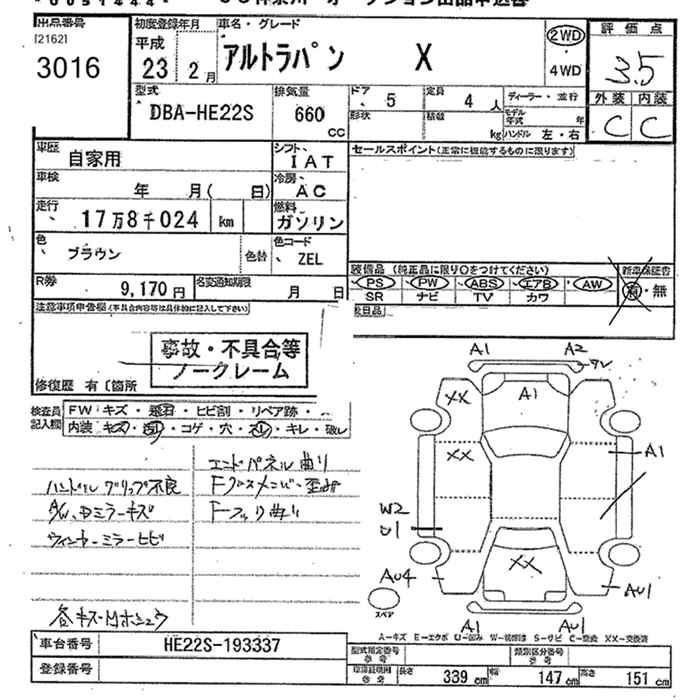 出品番号 初度登録年月 車名・グレード 2WD 評価点
[2162] 平成 アルトラパン X 4WD 3.5
3016 23年 2月
型式 排気量 ドア 5 定員 4人 ディーラー・並行 外装 内装
DBA-HE22S 660 CC 形状 積載 kg モデル年式 年 C C
ハンドル 左・右
車歴 自家用 シフト IAT セールスポイント(正常に機能するものに限ります)
車検 年 月( 日) 冷房 AC
走行 17万8千024 km 燃料 ガソリン
色 ブラウン 色替 色コード ZEL
装備品 (純正品に限り○をつけてください) 新車保証書
R券 9,170円 名変通知期限 月 日 PS PW ABS エアB AW 有・無
SR ナビ TV カワ
注意事項申告欄(不具合内容等は具体的に記入して下さい)
事故・不具合等
ノークレーム
修復歴 有〔箇所
検査員記入欄 FW キズ・飛石・ヒビ割・リペア跡・
内装 キズ・コゲ・穴・キレ・破レ
A1 A2
XX A1
XX A1
W2
U1
XX
AU4 AU1
スペア
A1 AU1
エンドパネル曲り
ハンドルグリップ不良
A/W、Dミラーキズ
ウィンカーミラーヒビ
各キズ
A-キズ E-エクボ U-凹み S-サビ XX-交換済
車台番号 HE22S-193337 型式指定番号 類別区分番号
登録番号 長さ 339 cm 幅 147 cm 高さ 151 cm